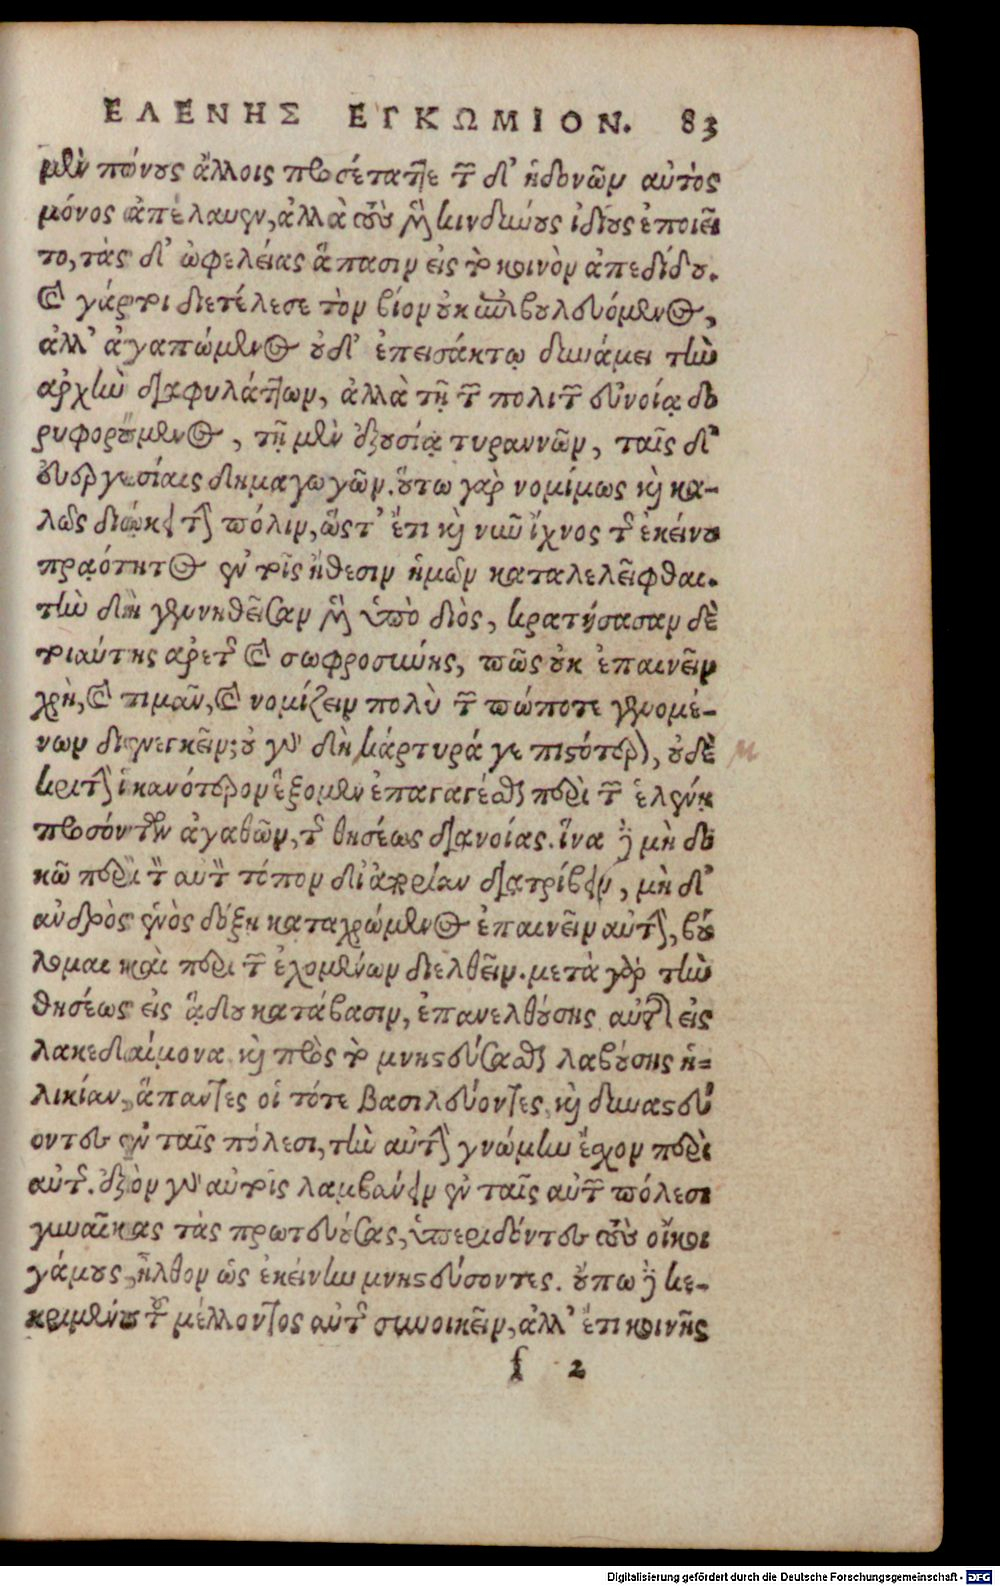 ΕΛΕΝΗΣ ΕΓΚΩΜΙΟΝ. 83
μὲν πόνους ἄλλοις προσέταττε τῶν δ' ἡδονῶν αὐτὸς
μόνος ἀπέλαυεν, ἀλλὰ τοὺς μὲν κινδύνους ἰδίους ἐποιεῖ
το, τὰς δ' ὠφελείας ἅπασιν εἰς τὸ κοινὸν ἀπεδίδου.
Καὶ γάρτοι διετέλεσε τὸν βίον οὐκ ἐπιβουλευόμενος,
ἀλλ' ἀγαπώμενος οὐδ' ἐπεισάκτῳ δυνάμει τὴν
ἀρχὴν διαφυλάττων, ἀλλὰ τῇ τῶν πολιτῶν εὐνοίᾳ δο
ρυφορούμενος, τῇ μὲν ἐξουσίᾳ τυραννῶν, ταῖς δ'
εὐεργεσίαις δημαγωγῶν. οὕτω γὰρ νομίμως καὶ κα-
λῶς διῴκει τὴν πόλιν, ὥστ' ἔτι καὶ νῦν ἴχνος τῆς ἐκείνου
πρᾳότητος ἐν τοῖς ἤθεσιν ἡμῶν καταλελεῖφθαι.
τὴν δὴ γεννηθεῖσαν μὲν ὑπὸ διὸς, κρατήσασαν δὲ
τοιαύτης ἀρετῆς καὶ σωφροσύνης, πῶς οὐκ ἐπαινεῖν
χρὴ, καὶ τιμᾶν, καὶ νομίζειν πολὺ τῶν πώποτε γενομέ-
νων διενεγκεῖν; οὐ γὰρ δὴ μάρτυρά γε πιστότερον, οὐδὲ
κριτὴν ἱκανότερον ἕξομεν ἐπαγαγέσθαι περὶ τῶν ἑλένῃ
προσόντων ἀγαθῶν, τῆς θησέως διανοίας. ἵνα δὲ μὴ δο
κῶ περὶ τὸν αὐτὸν τόπον δι' ἀπορίαν διατρίβειν, μὴ δ'
ἀνδρὸς ἑνὸς δόξῃ καταχρώμενος ἐπαινεῖν αὐτὴν, βού
λομαι καὶ περὶ τῶν ἐχομένων διελθεῖν. μετὰ γὰρ τὴν
θησέως εἰς ᾅδου κατάβασιν, ἐπανελθούσης αὐτῆς εἰς
λακεδαίμονα καὶ πρὸς τὸ μνηστεύεσθαι λαβούσης ἡ=
λικίαν, ἅπαντες οἱ τότε βασιλεύοντες, καὶ δυναστεύ
οντες ἐν ταῖς πόλεσι, τὴν αὐτὴν γνώμην ἔσχον περὶ
αὐτῆς. ἐξὸν γὰρ αὐτοῖς λαμβάνειν ἐν ταῖς αὐτῶν πόλεσι
γυναῖκας τὰς πρωτευούσας, ὑπεριδόντες τοὺς οἴκοι
γάμους, ἦλθον ὡς ἐκείνην μνηστεύσοντες. οὔπω δὲ κε-
κριμένου τοῦ μέλλοντος αὐτῇ συνοικεῖν, ἀλλ' ἔτι κοινῆς
f 2
Digitalisierung gefördert durch die Deutsche Forschungsgemeinschaft - DFG